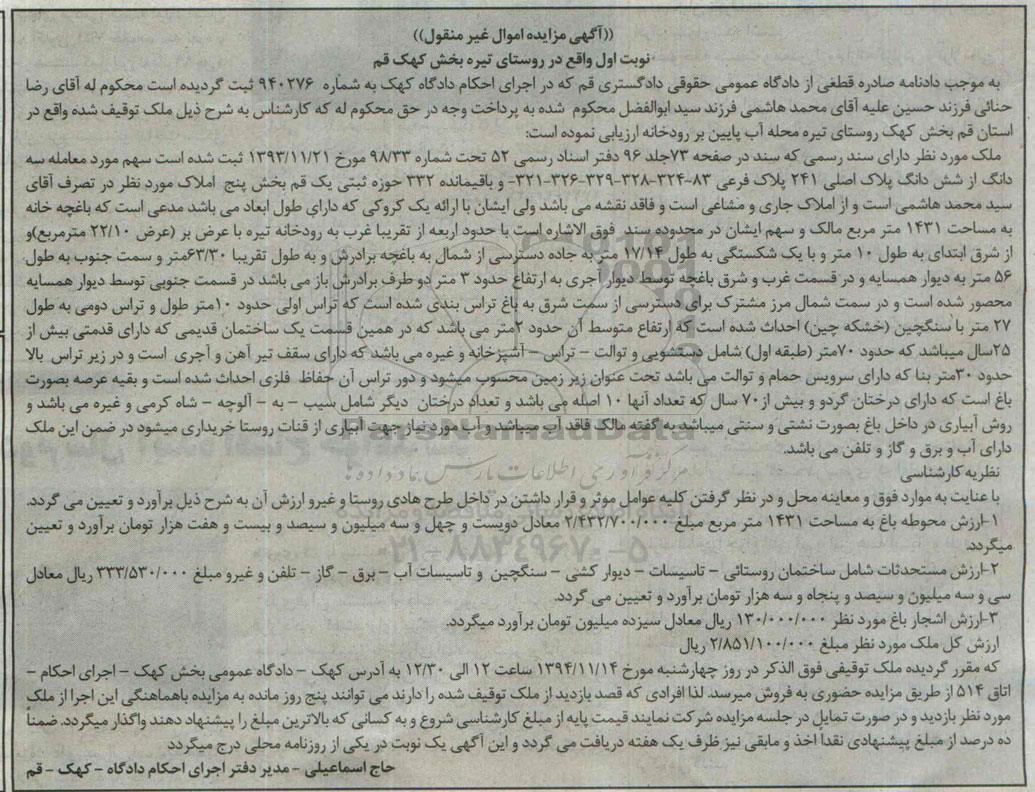 ((آگهی مزایده اموال غیر منقول))
نوبت اول واقع در روستای تیره بخش کهک قم
به موجب دادنامه صادره قطعی از دادگاه عمومی حقوقی دادگستری قم که در اجرای احکام دادگاه کهک به شماره ۹۴۰۲۷۶ ثبت گردیده است محکوم له آقای رضا
حنائی فرزند حسین علیه آقای محمد هاشمی فرزند سید ابوالفضل محکوم شده به پرداخت وجه در حق محکوم له که کارشناس به شرح ذیل ملک توقیف شده واقع در
استان قم بخش کهک روستای تیره محله آب پایین بر رودخانه ارزیابی نموده است:
ملک مورد نظر دارای سند رسمی که سند در صفحه ۷۳جلد ۹۶ دفتر اسناد رسمی ۵۲ تحت شماره ۹۸/۳۳ مورخ ۱۳۹۳/۱۱/۲۱ ثبت شده است سهم مورد معامله سه
دانگ از شش دانگ پلاک اصلی ۲۴۱ پلاک فرعی ۸۳-۳۲۴-۳۲۸-۳۲۹-۳۲۶-۳۲۱- و باقیمانده ۳۳۲ حوزه ثبتی یک قم بخش پنج املاک مورد نظر در تصرف آقای
سید محمد هاشمی است و از املاک جاری و مشاعی است و فاقد نقشه می باشد ولی ایشان با ارائه یک کروکی که دارای طول ابعاد می باشد مدعی است که باغچه خانه
به مساحت ۱۴۳۱ متر مربع مالک و سهم ایشان در محدوده سند فوق الاشاره است با حدود اربعه از تقریبا غرب به رودخانه تیره با عرض بر (عرض ۲۲/۱۰ مترمربع)و
از شرق ابتدای به طول ۱۰ متر و با یک شکستگی به طول ۱۷/۱۴ متر به جاده دسترسی از شمال به باغچه برادرش و به طول تقریبا ۶۳/۳۰متر و سمت جنوب به طول
۵۶ متر به دیوار همسایه و در قسمت غرب و شرق باغچه توسط دیوار آجری به ارتفاع حدود ۳ متر دو طرف برادرش باز می باشد در قسمت جنوبی توسط دیوار همسایه
محصور شده است و در سمت شمال مرز مشترک برای دسترسی از سمت شرق به باغ تراس بندی شده است که تراس اولی حدود ۱۰متر طول و تراس دومی به طول
۲۷ متر با سنگچین (خشکه چین) احداث شده است که ارتفاع متوسط آن حدود ۲متر می باشد که در همین قسمت یک ساختمان قدیمی که دارای قدمتی بیش از
۲۵سال میباشد که حدود ۷۰متر (طبقه اول) شامل دستشویی و توالت – تراس – آشپزخانه و غیره می باشد که دارای سقف تیر آهن و آجری است و در زیر تراس بالا
حدود ۳۰متر بنا که دارای سرویس حمام و توالت می باشد تحت عنوان زیر زمین محسوب میشود و دور تراس آن حفاظ فلزی احداث شده است و بقیه عرصه بصورت
باغ است که دارای درختان گردو و بیش از۷۰ سال که تعداد آنها ۱۰ اصله می باشد و تعداد درختان دیگر شامل سیب – به – آلوچه – شاه کرمی و غیره می باشد و
روش آبیاری در داخل باغ بصورت نشتی و سنتی میباشد به گفته مالک فاقد آب میباشد و آب مورد نیاز جهت آبیاری از قنات روستا خریداری میشود در ضمن این ملک
دارای آب و برق و گاز و تلفن می باشد.
نظریه کارشناسی
با عنایت به موارد فوق و معاینه محل و در نظر گرفتن کلیه عوامل موثر و قرار داشتن در داخل طرح هادی روستا و غیرو ارزش آن به شرح ذیل برآورد و تعیین می گردد.
۱-ارزش محوطه باغ به مساحت ۱۴۳۱ متر مربع مبلغ ۲/۴۳۲/۷۰۰/۰۰۰ معادل دویست و چهل و سه میلیون و سیصد و بیست و هفت هزار تومان برآورد و تعیین
میگردد.
۲-ارزش مستحدثات شامل ساختمان روستائی – تاسیسات – دیوار کشی – سنگچین و تاسیسات آب – برق – گاز – تلفن و غیرو مبلغ ۳۳۳/۵۳۰/۰۰۰ ریال معادل
سی و سه میلیون و سیصد و پنجاه و سه هزار تومان برآورد و تعیین می گردد.
۳-ارزش اشجار باغ مورد نظر ۱۳۰/۰۰۰/۰۰۰ ریال معادل سیزده میلیون تومان برآورد میگردد.
ارزش کل ملک مورد نظر مبلغ ۲/۸۵۱/۱۰۰/۰۰۰ ریال
که مقرر گردیده ملک توقیفی فوق الذکر در روز چهارشنبه مورخ ۱۳۹۴/۱۱/۱۴ ساعت ۱۲ الی ۱۲/۳۰ به آدرس کهک – دادگاه عمومی بخش کهک – اجرای احکام –
اتاق ۵۱۴ از طریق مزایده حضوری به فروش میرسد. لذا افرادی که قصد بازدید از ملک توقیف شده را دارند می توانند پنج روز مانده به مزایده باهماهنگی این اجرا از ملک
مورد نظر بازدید و در صورت تمایل در جلسه مزایده شرکت نمایند قیمت پایه از مبلغ کارشناسی شروع و به کسانی که بالاترین مبلغ را پیشنهاد دهند واگذار میگردد. ضمناً
ده درصد از مبلغ پیشنهادی نقدا اخذ و مابقی نیز ظرف یک هفته دریافت می گردد و این آگهی یک نوبت در یکی از روزنامه محلی درج میگردد
حاج اسماعیلی – مدیر دفتر اجرای احکام دادگاه – کهک – قم
ParsNamadData
مرکز فرآوری اطلاعات پارس نماد داده ها
۰۲۱-۸۸۳۴۹۶۷۰-۵